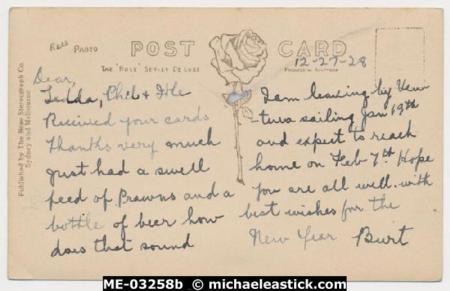 Real Photo
POST CARD
THE "ROSE" SERIES DE LUXE
12-27-28
Published by The Rose Stereograph Co.
Sydney and Melbourne
Dear,
Linda, Chil &
Received your cards
Thanks very much
Just had a swell
feed of Prawns and a
bottle of beer how
does that sound
I am leaving by
sailing Jan 19th
and expect to reach
home on Feb 7th Hope
you are all well. with
best wishes for the
New Year Burt
ME-03258b © michaeleastick.com